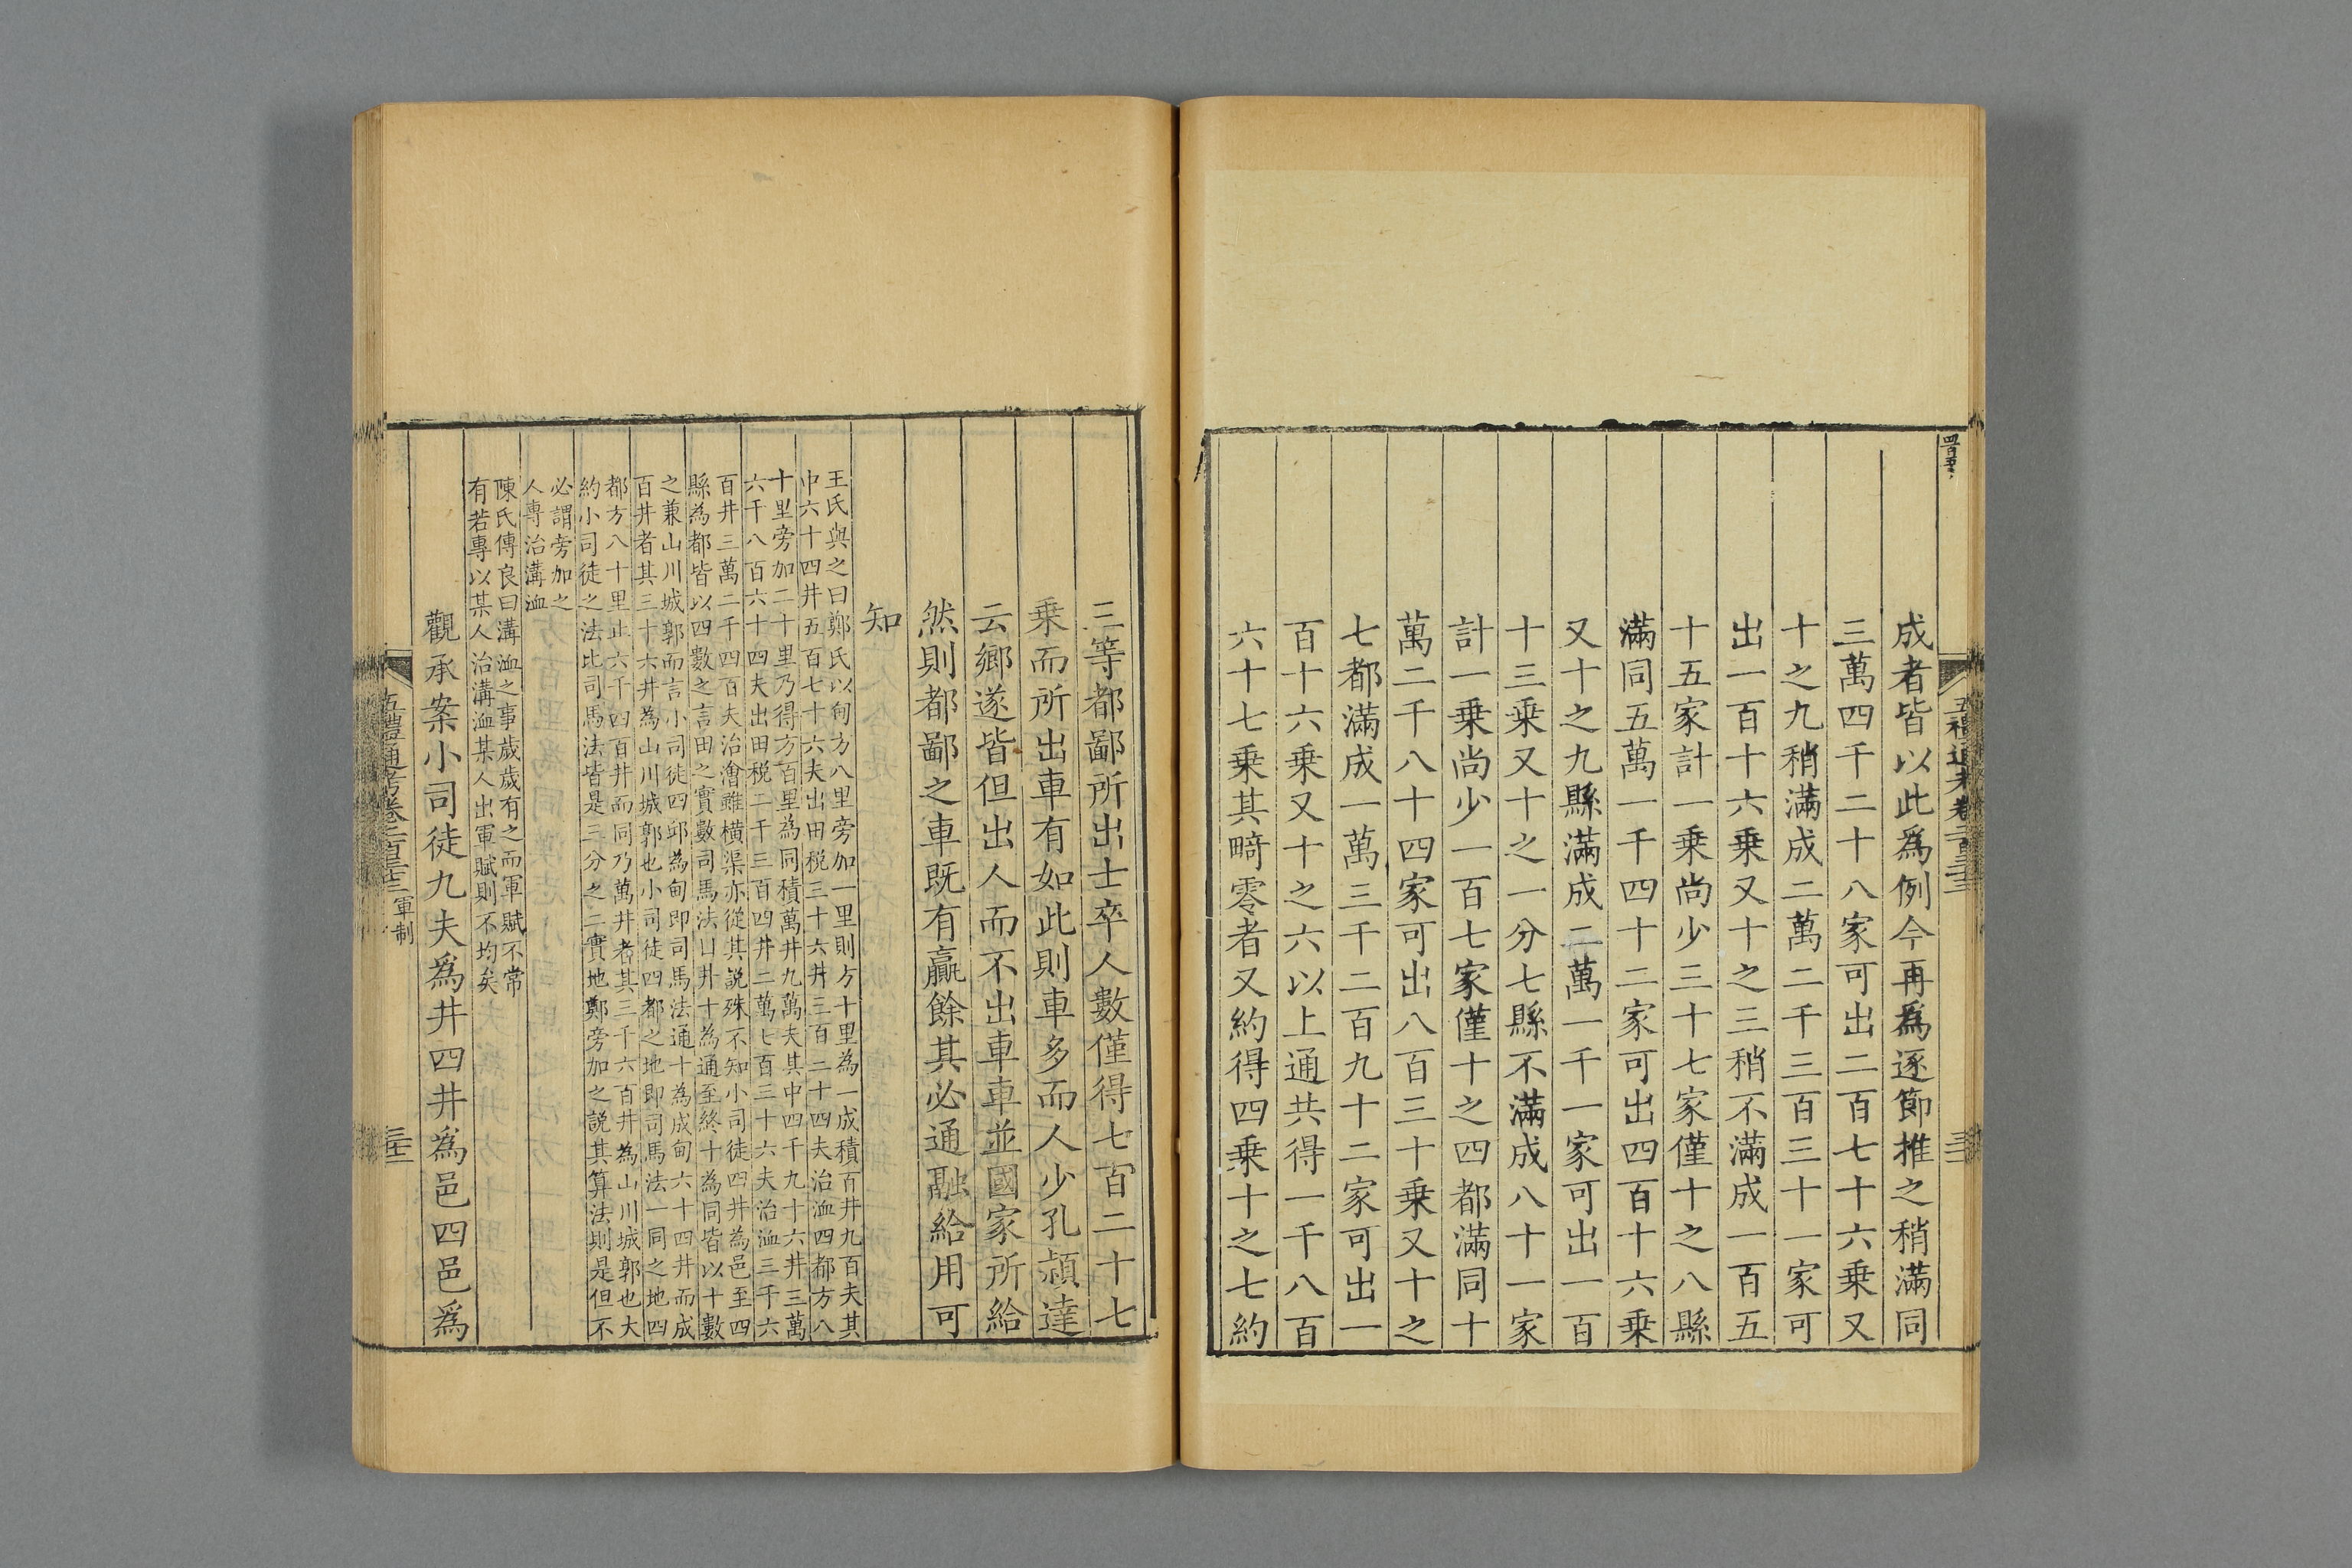 成者皆以此爲例今再爲逐節推之稍滿同
三萬四千二十八家可出二百七十六乗又
十之九稍滿成二萬二千三百三十一家可
出一百十六乗又十之三稍不滿成一百五
十五家計一乗尚少三十七家僅十之八縣
滿同五萬一千四十二家可出四百十六乗
又十之九縣滿成二萬一千一家可出一百
十三乗又十之一分七縣不滿成八十一家
計一乗尚少一百七家僅十之四都滿同十
萬二千八十四家可出八百三十乗又十之
七都滿成一萬三千二百九十二家可出一
百十六乗又十之六以上通共得一千八百
六十七乗其畸零者又約得四乗十之七約
三等都鄙所出士卒人數僅得七百二十七
乗而所出車有如此則車多而人少孔潁達
云鄉遂皆但出人而不出車車並國家所給
然則都鄙之車既有贏餘其必通融給用可
知
王氏與之曰鄭氏以甸方八里旁加一里則方十里爲一成積百井九百夫其
中六十四井五百七十六夫出田稅三十六井三百二十四夫治洫四都方八
十里旁加二十里乃得方百里為同積萬井九萬夫其中四千九十六井三萬
六千八百六十四夫出田稅二千三百四井二萬七百三十六夫治洫三千六
百井三萬二千四百夫治澮雖橫渠亦從其説殊不知小司徒四井為邑至四
縣為都皆以四數之言田之實數司馬法曰井十為通至終十為同皆以十數
之兼山川城郭而言小司徒四邱為甸即司馬法通十為成甸六十四井而成
百井者其三十六井為山川城郭也小司徒四都之地即司馬法一同之地四
都方八十里止六千四百井而同乃萬井者其三千六百井為山川城郭也大
約小司徒之法比司馬法皆是三分之二實地鄭旁加之説其算法則是但不
必謂旁加之
人專治溝洫
陳氏傅良曰溝洫之事歲歲有之而軍賦不常
有若專以某人治溝洫某人出軍賦則不均矣
觀承案小司徒九夫爲井四井爲邑四邑爲
五禮通考卷二百三十三 軍制